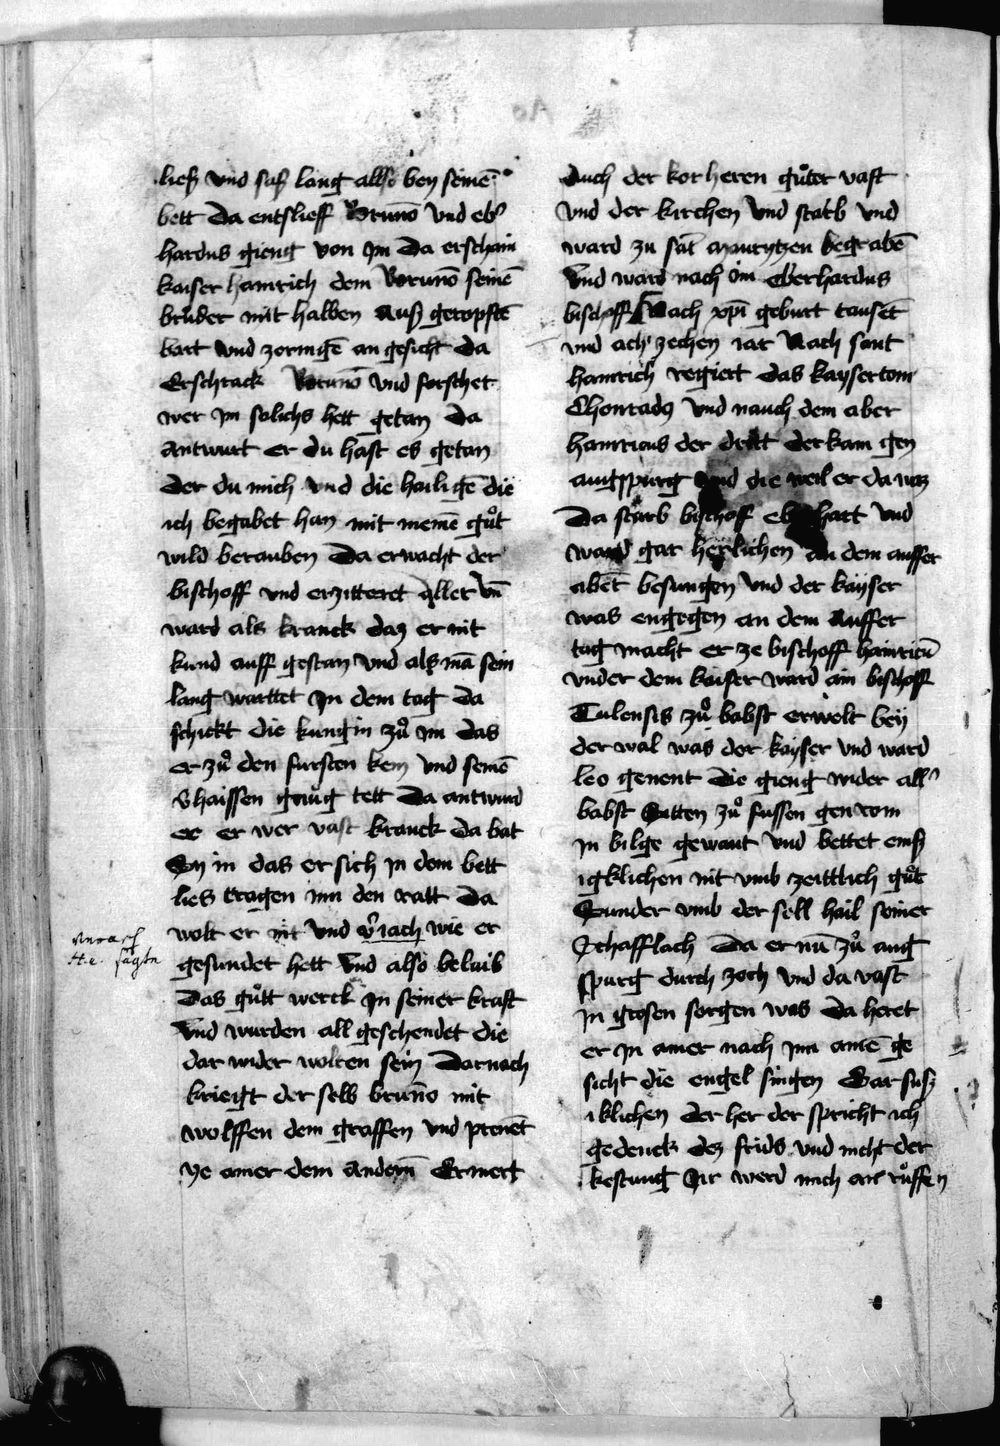 ließ vnd saß lang allso bey seinē
bett Da entslieff Brunō vnd eb
hardus gieng von jm da erschain
kaiser hainrich dem Brunō seinē
brůder mit halben auß geropftē
bart vnd zornigē an gesicht da
Erschrack Brunō vnd forschet
wer jm solichs hett getan da
antwurt er du hast es getan
der du mich vnd die hailigē die
ich begabet han mit meinē gůt
wild berauben Da erwacht der
bischoff vnd erzitteret aller vn̄
ward als kranck daz er nit
kund auff gestan vnd als mā sein
lang warttet jn dem tag da
schickt die kungin zů jm das
er zů den fursten kem vnd seinē
vhaissen gnůg tett Da antwurd
er er wer vast kranck da bat
Sy in das er sich jn dem bett
lies tragen inn den ratt Da
wolt er nit vnd v̄jach wie er
gesundet hett vnd also beluib
das gůtt werck jn seiner kraft
vnd wurden all geschendet die
dar wider wolten sein Darnach
kriegt der selb brunō mit
wolffen dem graffen vnd prenēt
ye ainer dem andern̄ Er mert
auch der kor heren gůter vast
vnd der kirchen vnd starb vnd
ward zu sāt maurytzen begrabē
vnd ward nach im Eberhardus
bischoff Nach xp̄i geburt tausēt
vnd ach zechen iar Nach sant
hainrich regiert das kaysertom
Chonradꝰ vnd nauch dem aber
hainricus der dritt der kam gen
augspurg vnd die weil er da waz
Da starb bischof eberhart vnd
ward gar herlichen an dem auffer
abēt besungen vnd der kayser
was engegen an dem auffer
tag macht er ze bischoff hainricū
vnder dem kaiser ward ain bischoff
Tulensis zů babst erwelt bey
der wal was der kayser vnd ward
leo genent die gieng wider all
babst Sitten zů fussen gen rom
jn bilge gewant vnd bettet emß
igklichen nit vmb zeittlich gůt
Sunder vmb der sell hail seiner
Schafflach Da er nū zů aug
spurg durch zoch vnd da vast
jn grosen sorgen was Da heret
er jn ainer nach jnn aine ge
sicht die engel singen Gar suß
iklichen der her der spricht ich
gedenck dez frids vnd nicht der
kestung Jr werd mich an růffen